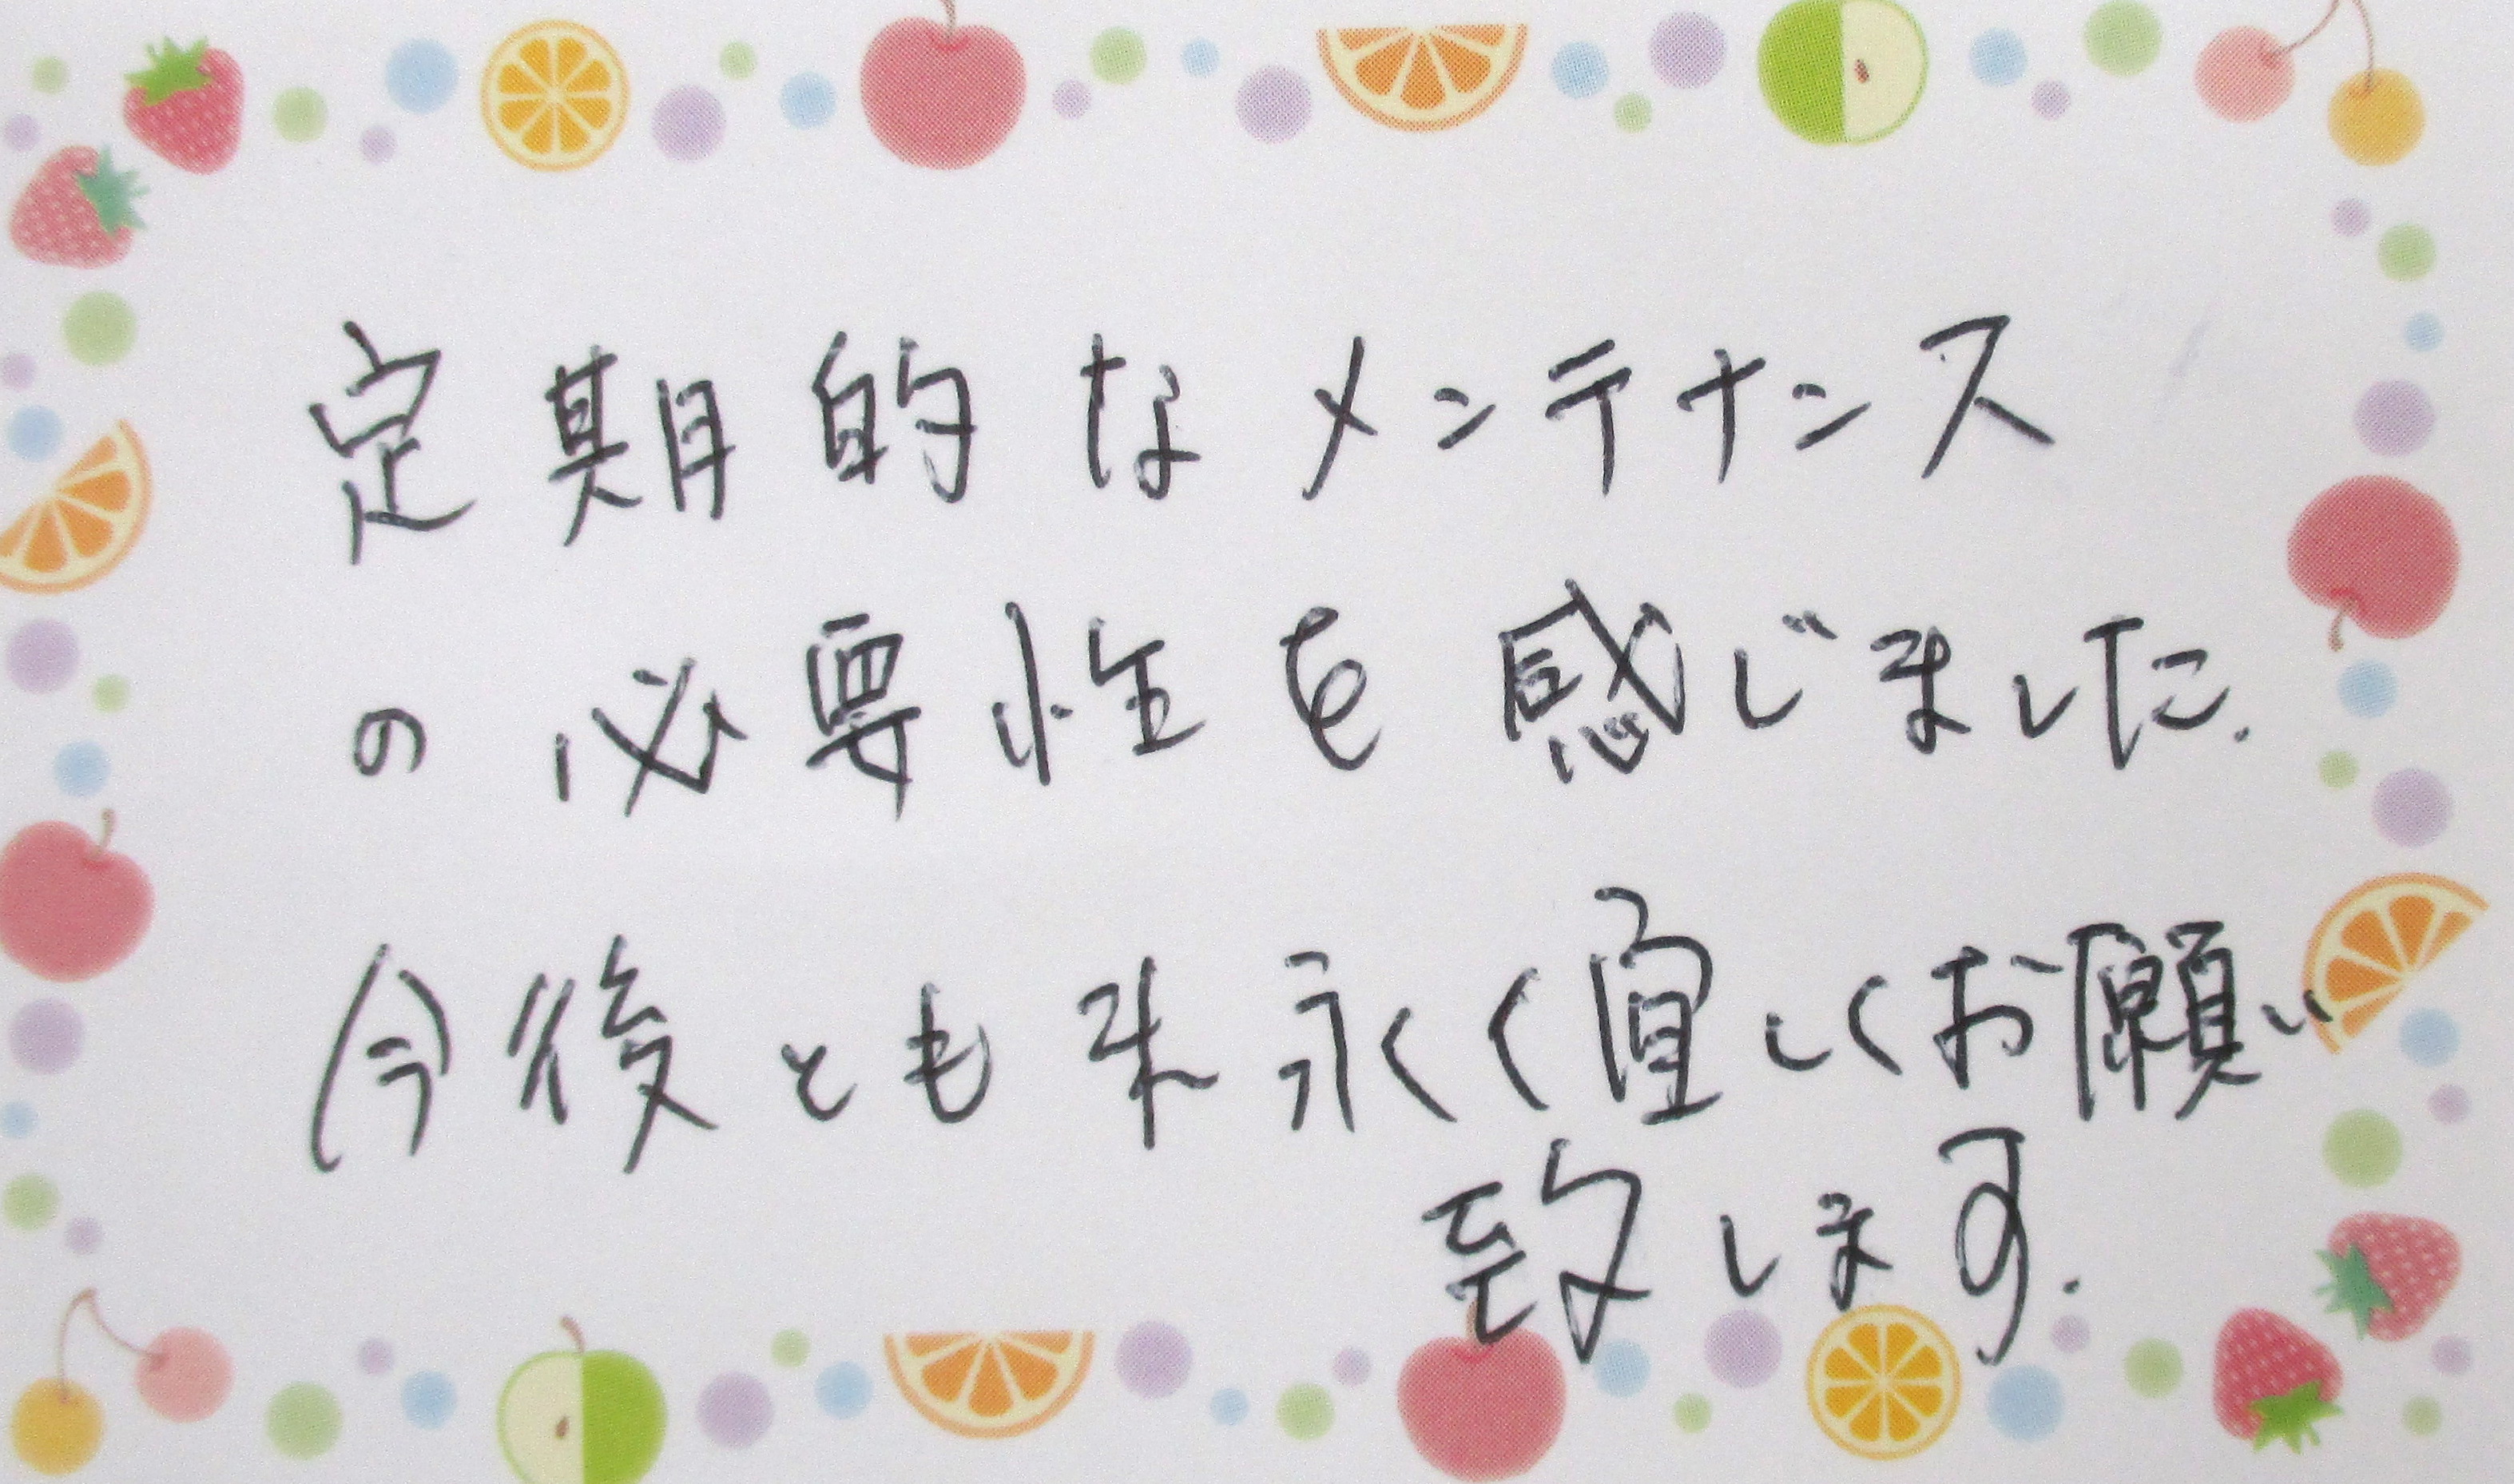 定期的なメンテナンス
の必要性を感じました.
今後とも末永く宜しくお願い
致します.